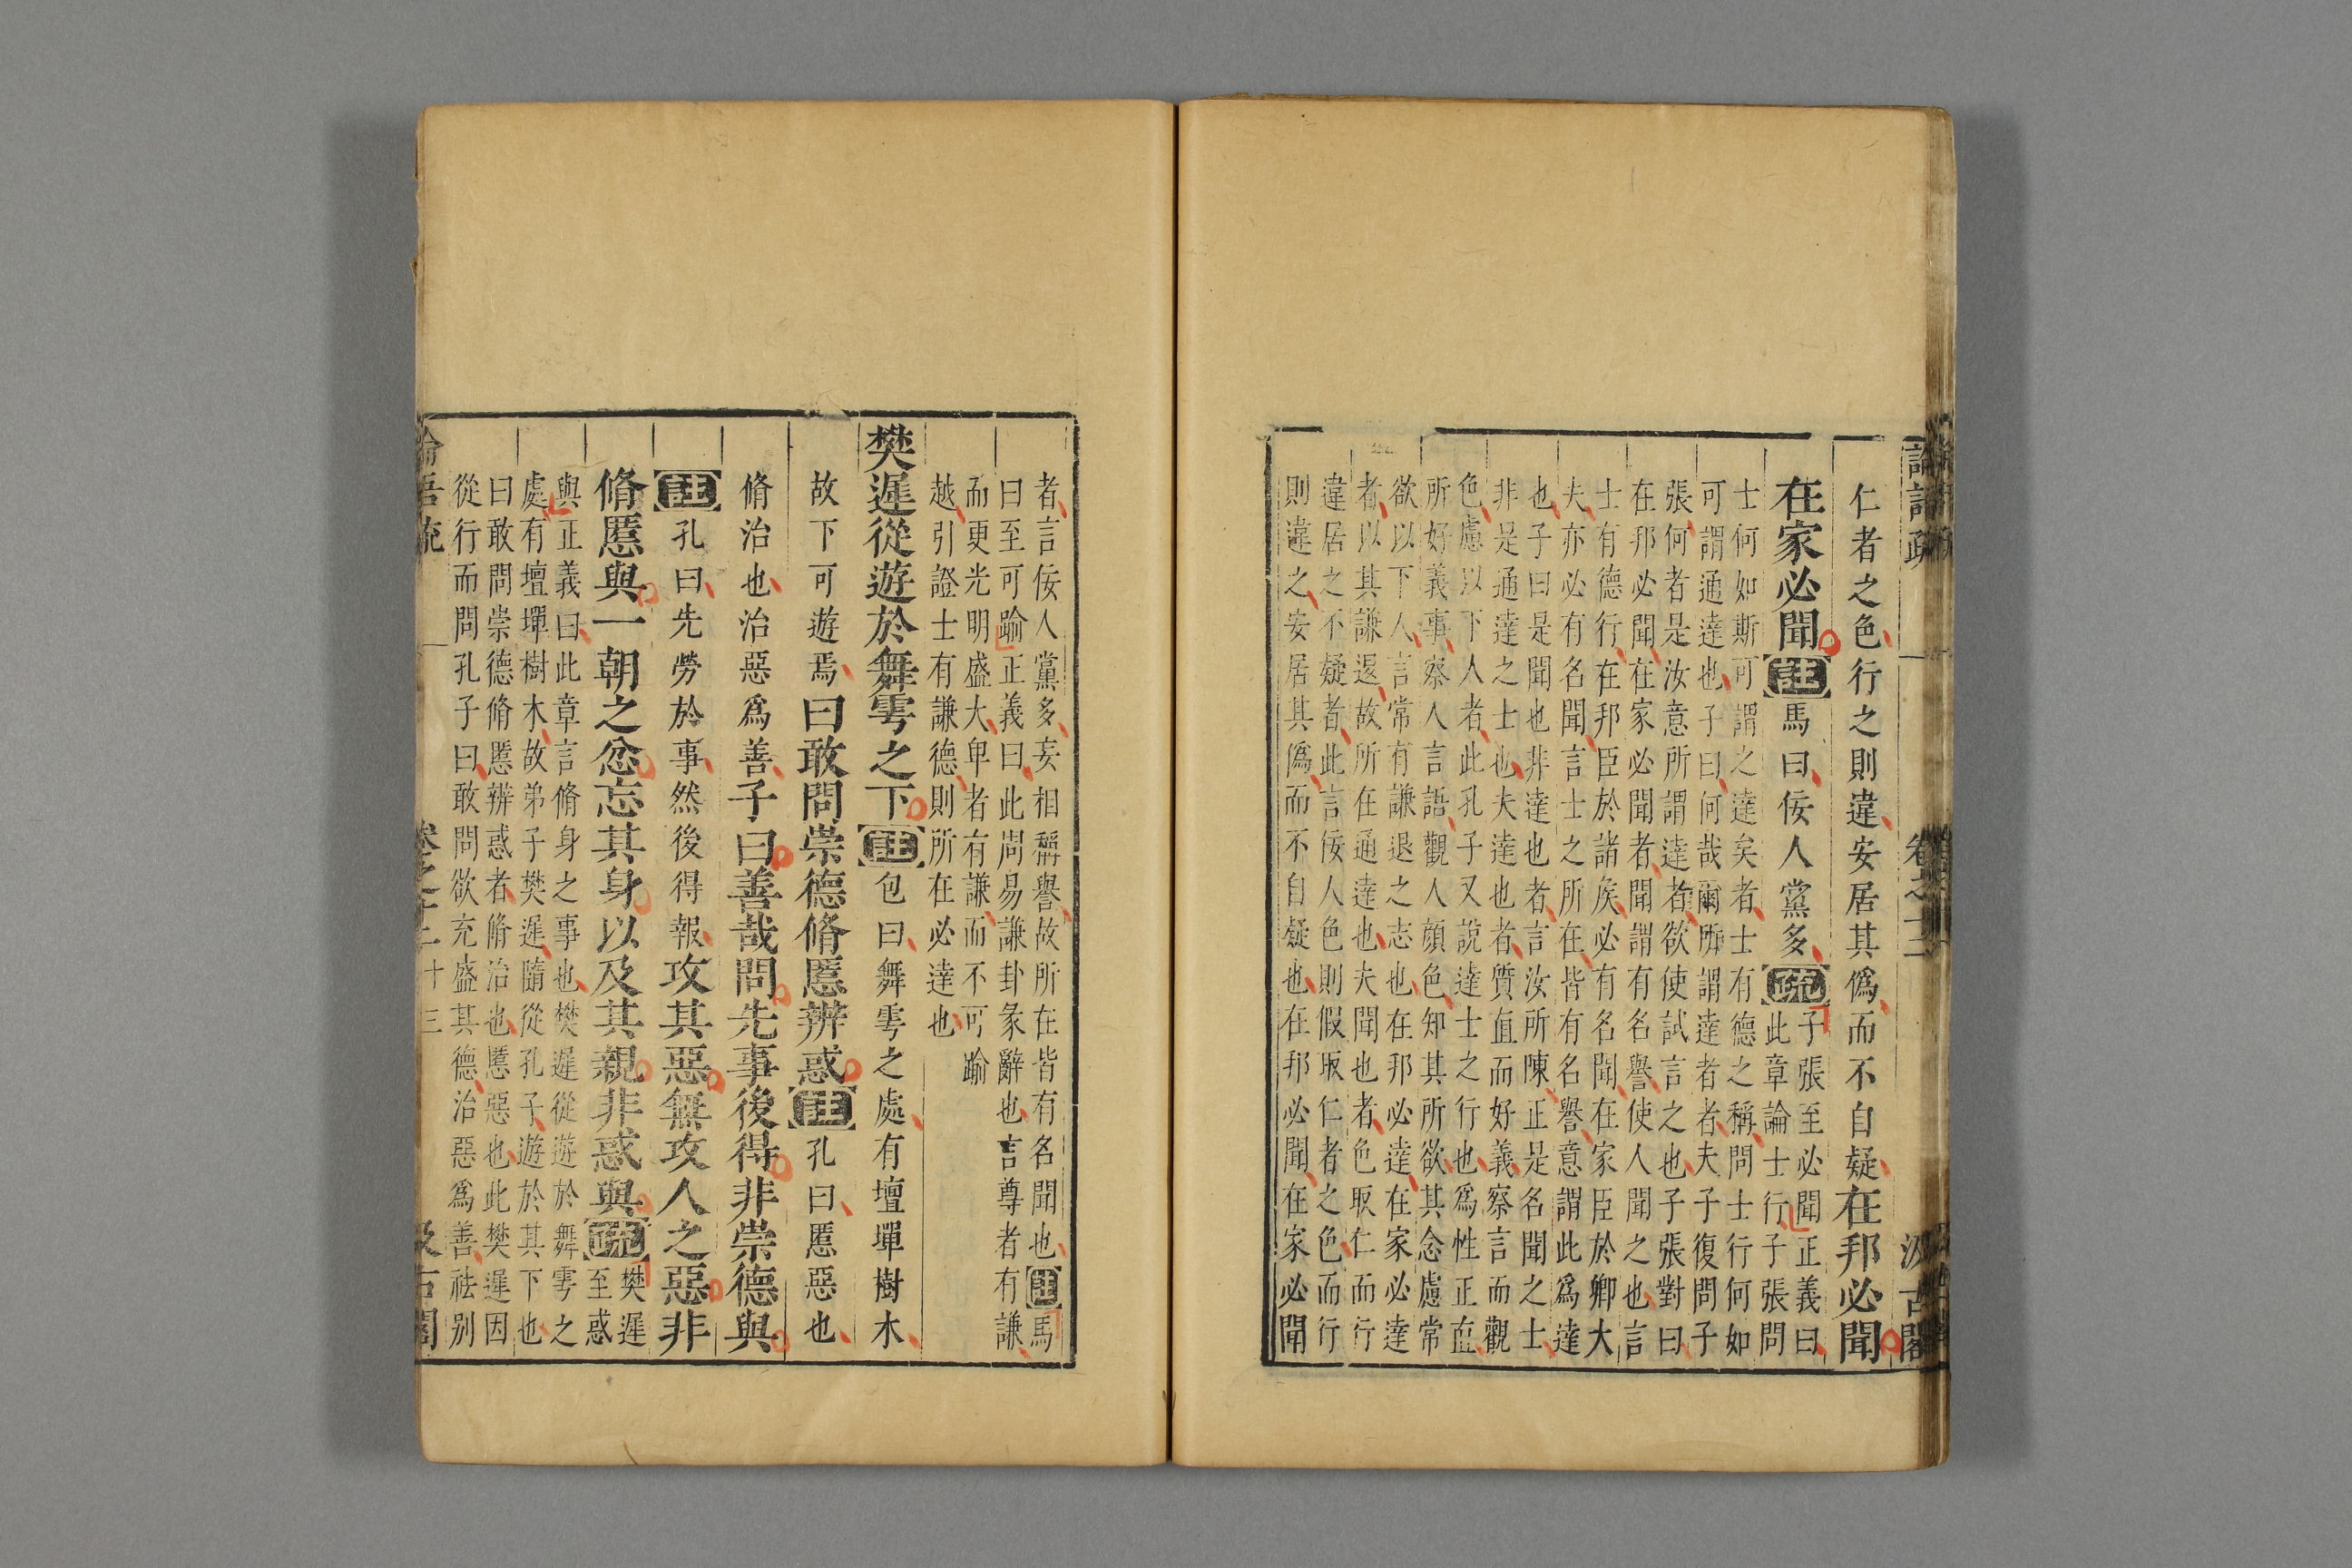 論語疏 卷之十二 汲古閣
仁者之色行之則違安居其僞而不自疑在邦必聞
在家必聞註馬曰佞人黨多疏子張至必聞正義曰
此章論士行子張問
士何如斯可謂之達矣者士有德之稱問士行何如
可謂通達也子曰何哉爾所謂達者者夫子復問子
張何者是汝意所謂達者欲使試言之也子張對曰
在邦必聞在家必聞者聞謂有名譽使人聞之也言
士有德行在邦臣於諸矦必有名聞在家臣於卿大
夫亦必有名聞言士之所在皆有名譽意謂此爲達
也子曰是聞也非達也者言汝所陳正是名聞之士
非是通達之士也夫達也者質直而好義察言而觀
色慮以下人者此孔子又說達士之行也爲性正直
所好義事察人言語觀人顏色知其所欲其念慮常
欲以下人言常有謙退之志也在邦必達在家必達
者以其謙退故所在通達也夫聞也者色取仁而行
違居之不疑者此言佞人色則假取仁者之色而行
則違之安居其僞而不自疑也在邦必聞在家必聞
者言佞人黨多妄相稱譽故所在皆有名聞也註馬
曰至可踰正義曰此周易謙卦彖辭也言尊者有謙
而更光明盛大卑者有謙而不可踰
越引證士有謙德則所在必達也
樊遲從遊於舞雩之下註包曰舞雩之處有壇墠樹木
故下可遊焉曰敢問崇德脩慝辨惑註孔曰慝惡也
脩治也治惡爲善子曰善哉問先事後得非崇德與
註孔曰先勞於事然後得報攻其惡無攻人之惡非
脩慝與一朝之忿忘其身以及其親非惑與疏樊遲
至惑
與正義曰此章言脩身之事也樊遲從遊於舞雩之
處有壇墠樹木故弟子樊遲隨從孔子遊於其下也
曰敢問崇德脩慝辨惑者脩治也慝惡也此樊遲因
從行而問孔子曰敢問欲充盛其德治惡爲善祛別
論語疏 卷之十二 十三 汲古閣